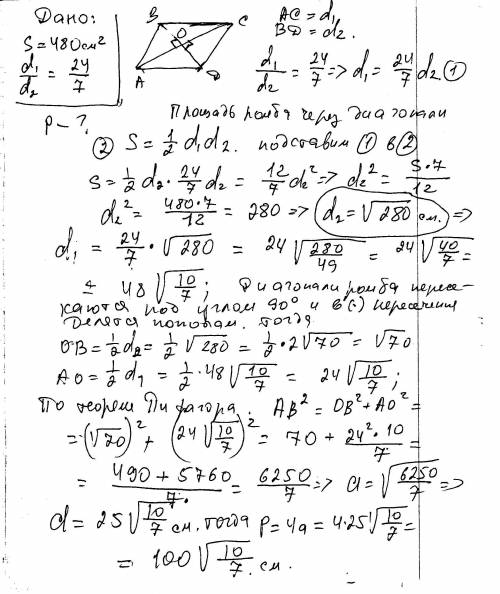 Дано:
S = 480 см²
d₁/d₂ = 24/7
P – ?
B C
O
A D
AC = d₁
BD = d₂.
d₁/d₂ = 24/7 => d₁ = 24/7 d₂ ①
Площадь ромба через диагонали
② S = 1/2 d₁ d₂. подставим ① в ②
S = 1/2 d₂ · 24/7 d₂ = 12/7 d₂² => d₂² = S·7/12
d₂² = 480·7/12 = 280 => d₂ = √280 см. =>
d₁ = 24/7 · √280 = 24 √(280/49) = 24 √(40/7) =
= 48 √(10/7); Диагонали ромба пересе-
каются под углом 90° и в (·) пересечения
делятся пополам. тогда
OB = 1/2 d₂ = 1/2 √280 = 1/2 · 2√70 = √70
AO = 1/2 d₁ = 1/2 · 48 √(10/7) = 24 √(10/7);
По теореме Пифагора. AB² = OB² + AO² =
= (√70)² + (24 √(10/7))² = 70 + 24²·10/7 =
= (490 + 5760)/7 = 6250/7 => a = √(6250/7) =>
a = 25 √(10/7) см. тогда P = 4a = 4·25 √(10/7) =
= 100 √(10/7) см.